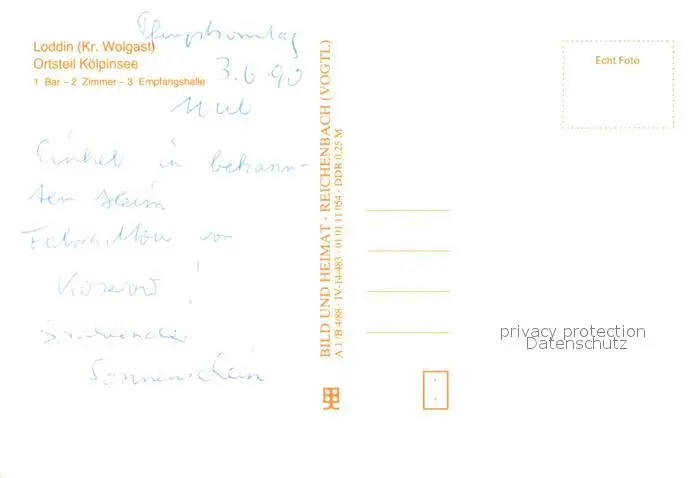 Pfingstsonntag
Loddin (Kr. Wolgast)
Ortsteil Kölpinsee
3.6.90
1 Bar – 2 Zimmer – 3 Empfangshalle
Einkel in bekann-
ten Heim
von
Strahlender
Sonnenschein
BILD UND HEIMAT · REICHENBACH (VOGTL)
A 1/B 4/88 · IV-14-483 · 01 01 11 054 · DDR 0,25 M
Echt Foto
privacy protection
Datenschutz